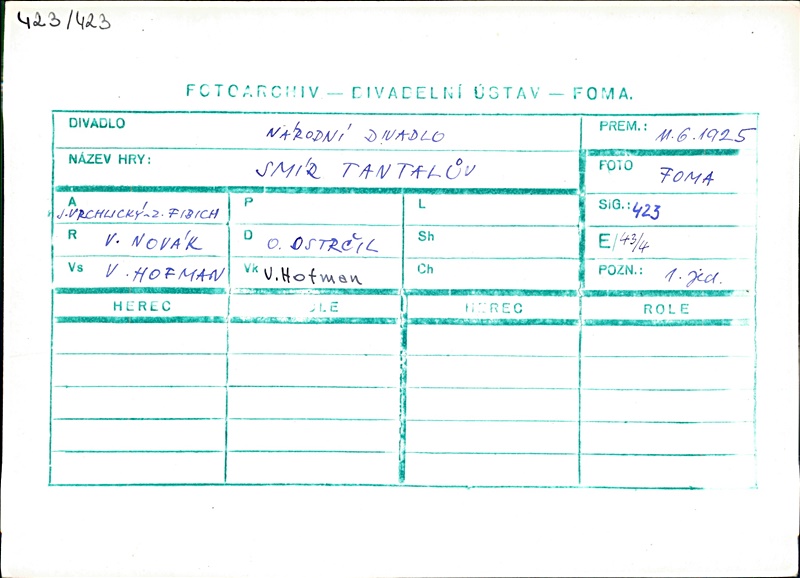 423/423
FOTOARCHIV — DIVADELNÍ ÚSTAV — FOMA.
DIVADLO NÁRODNÍ DIVADLO PREM.: 11.6.1925
NÁZEV HRY: SMÍR TANTALŮV FOTO FOMA
A J. VRCHLICKÝ-Z. FIBICH P L SIG.: 423
R V. NOVÁK D O. OSTRČIL Sh E/43/4
Vs V. HOFMAN Vk V. Hofman Ch POZN.: 1. jed.
HEREC ROLE HEREC ROLE